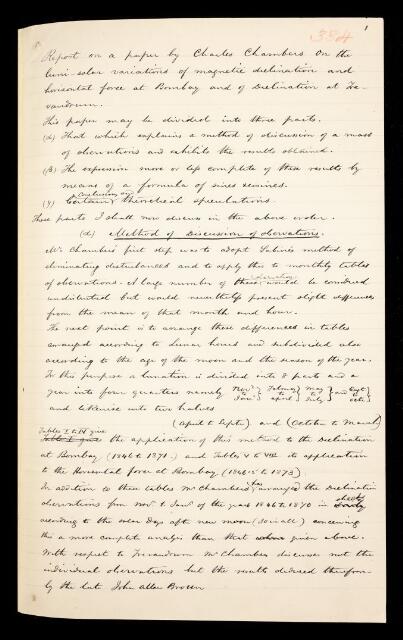 384
1
Report on a paper by Charles Chambers On the
luni-solar variations of magnetic declination and
horizontal force at Bombay and of Declination at Tre-
vandrum.
This paper may be divided into three parts.
(α) That which explains a method of discussion of a mass
of observations and exhibits the results obtained.
(β) The expression more or less complete of these results by
means of a formula of sines cosines.
Conclusions and
(γ) Certain theoretical speculations.
These parts I shall now discuss in the above order.
(α) Method of Discussion of observations.
Mr. Chambers' first step was to adopt Sabine's method of
eliminating disturbances and to apply this to monthly tables
of observations. A large number of these would be considered
undisturbed but would nevertheless present slight differences
from the mean of that month and hour.
The next point is to arrange these differences in tables
arranged according to lunar hours and subdivided also
according to the age of the moon and the season of the year.
To this purpose a lunation is divided into 8 parts and a
year into four quarters namely Nov to Jan} {February to April} {May to July} and {Augt to Octr}
and likewise into two halves
(April to Septr) and (October to March)
Tables I to IV give
Table I gives the application of this method to the Declination
at Bombay (1846 to 1871) and Tables V to VIII its application
to the Horizontal force at Bombay (1846 to 1873)
In addition to these tables Mr Chambers has arranged the Declination
observations from Novr to Jany of the years 1846 to 1870 in
according to the solar Days after new moon (30 in all) conceiving
this a more complete analysis than that given above.
With respect to Trevandrum Mr Chambers discusses not the
individual observations but the results deduced therefrom
by the late John Allan Broun